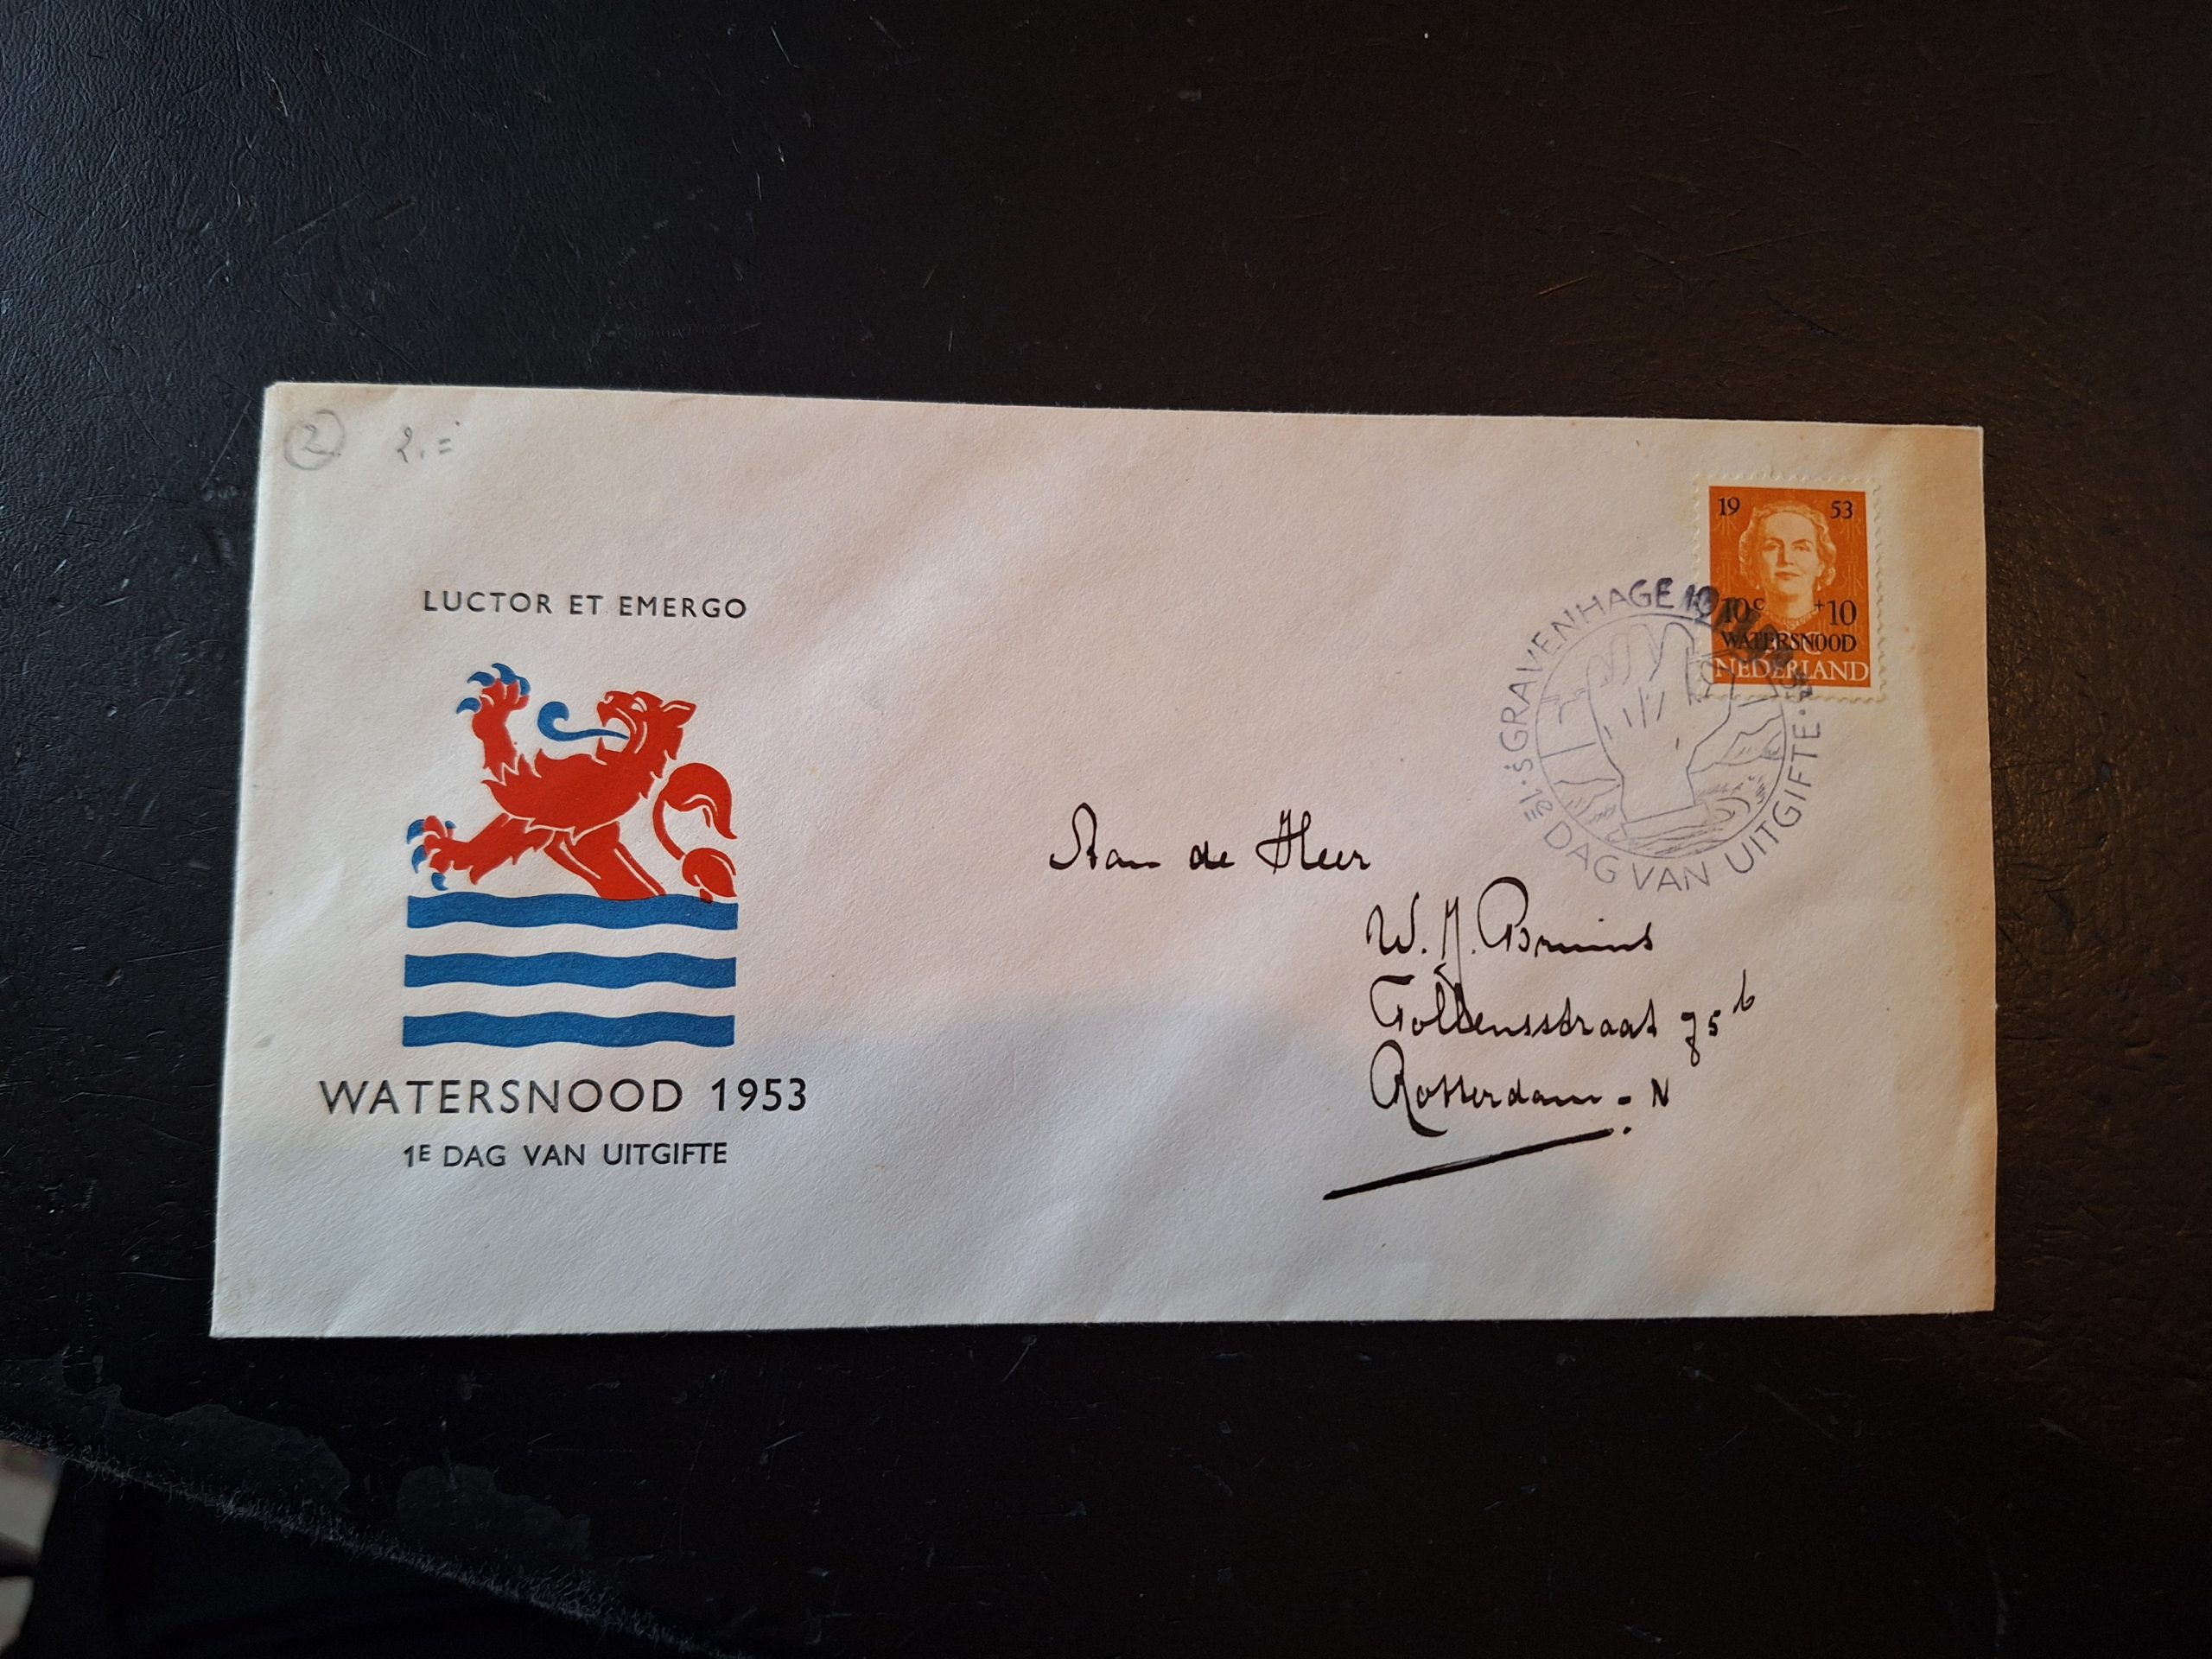 2 2.=
LUCTOR ET EMERGO
WATERSNOOD 1953
1E DAG VAN UITGIFTE
19 53
10c +10
WATERSNOOD
NEDERLAND
's GRAVENHAGE
1e DAG VAN UITGIFTE
Aan de Heer
W. J. Bruins
Tollensstraat 75b
Rotterdam - N